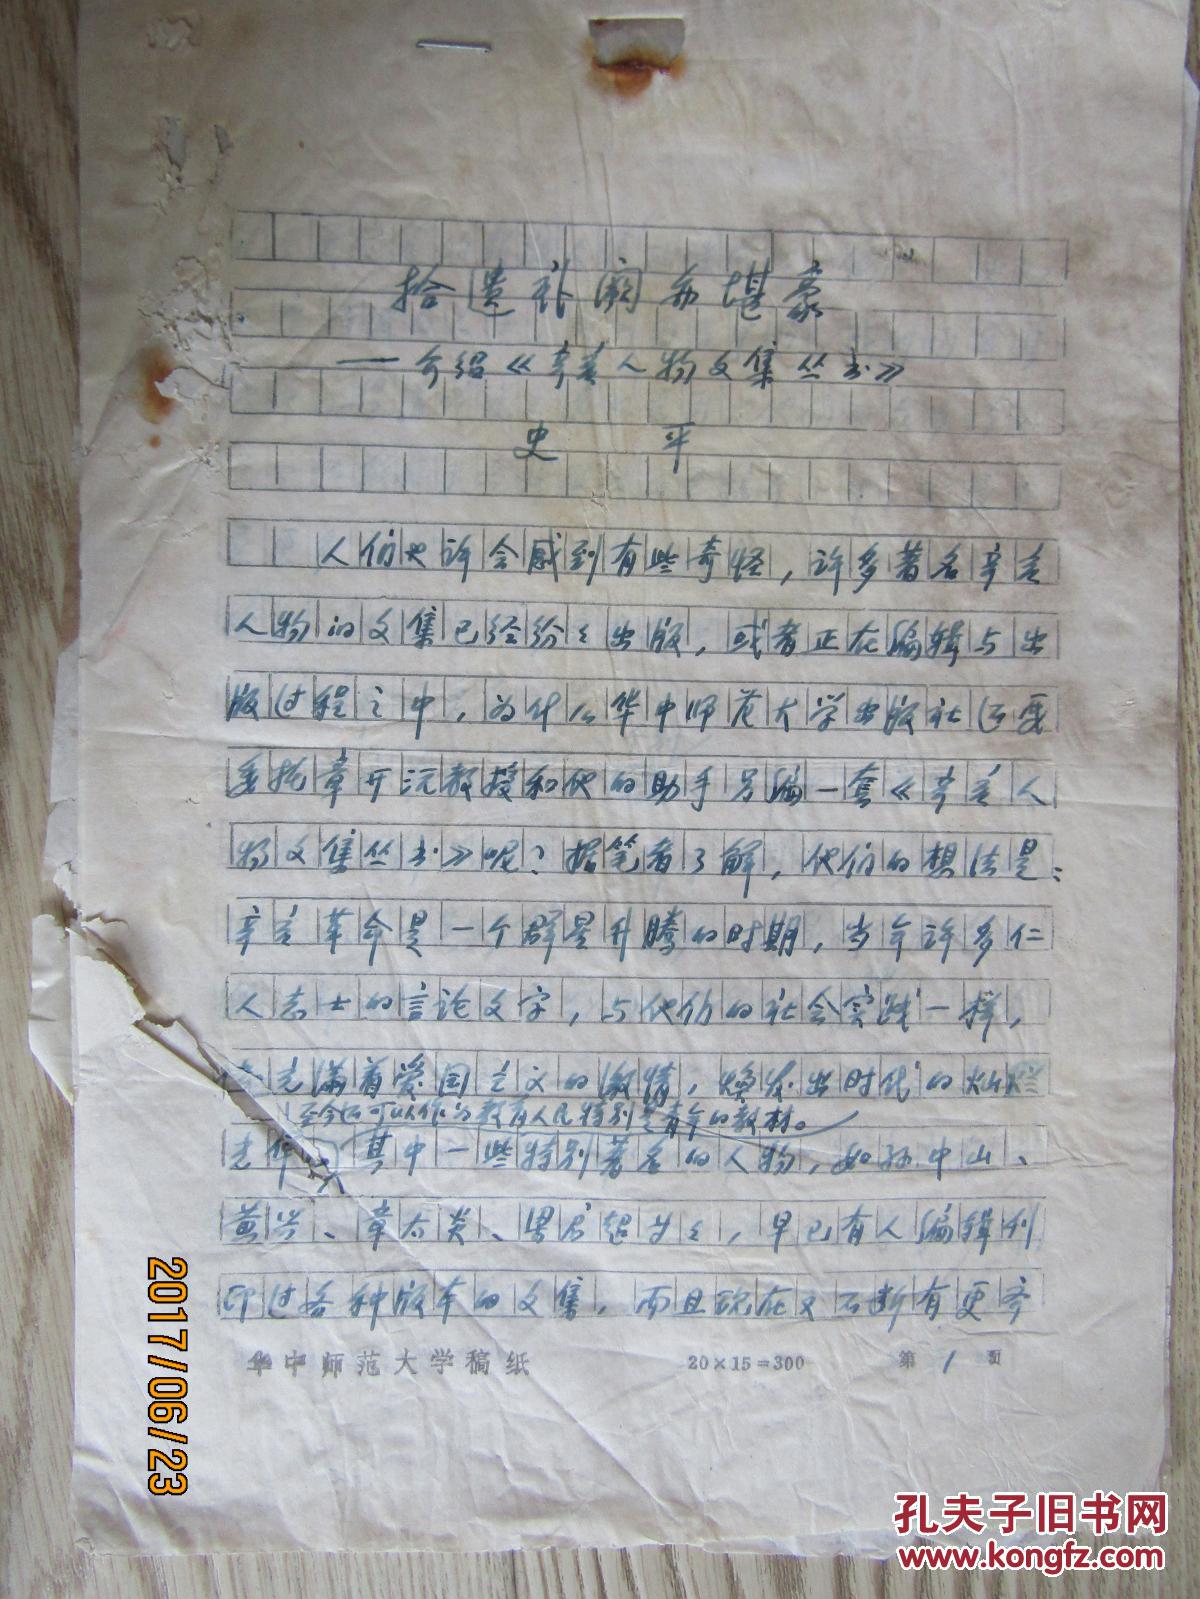 拾遗补阙亦堪豪
——介绍《辛亥人物文集丛书》
史 平
人们也许会感到有些奇怪，许多著名辛亥
人物的文集已经纷纷出版，或者正在编辑与出
版过程之中，为什么华中师范大学出版社还要
委托章开沅教授和他的助手另编一套《辛亥人
物文集丛书》呢？据笔者了解，他们的想法是：
辛亥革命是一个群星升腾的时期，当年许多仁
人志士的言论文字，与他们的社会实践一样，
充满着爱国主义的激情，焕发出时代的灿烂
至今还可以作为教育人民特别是青年的教材。
光华。其中一些特别著名的人物，如孙中山、
黄兴、章太炎、梁启超等等，早已有人编辑刊
印过各种版本的文集，而且现在又不断有更齐
华中师范大学稿纸 20×15=300 第 1 页
2017/06/23
孔夫子旧书网
www.kongfz.com